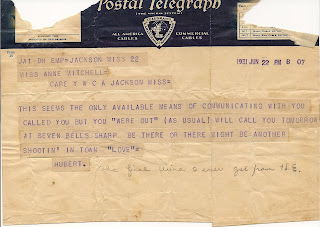 Postal Telegraph
ALL AMERICA
CABLES
COMMERCIAL
CABLES
JA1 DH EMP=JACKSON MISS 22
1931 JUN 22 PM 8 07
MISS ANNE MITCHELL=
CARE Y W C A JACKSON MISS=
THIS SEEMS THE ONLY AVAILABLE MEANS OF COMMUNICATING WITH YOU
CALLED YOU BUT YOU "WERE OUT" (AS USUAL) WILL CALL YOU TOMORROW
AT SEVEN BELLS SHARP. BE THERE OR THERE MIGHT BE ANOTHER
SHOOTIN' IN TOWN "LOVE"=
HUBERT.
The first wire I ever got from H.E.